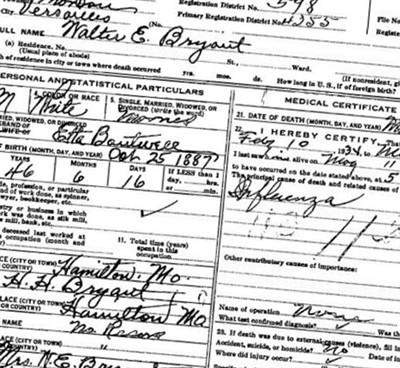 Versailles (No.
Registration District No. 598
Primary Registration District No. 4355
File No
Registered
FULL NAME Walter E. Bryant
(a) Residence. No. St., Ward.
(Usual place of abode) (If nonresident, gi
of residence in city or town where death occurred yrs. mos. ds. How long in U. S., if of foreign birth?
PERSONAL AND STATISTICAL PARTICULARS
MEDICAL CERTIFICATE
M
4. COLOR OR RACE White
5. SINGLE, MARRIED, WIDOWED, OR DIVORCED (write the word)
21. DATE OF DEATH (MONTH, DAY, AND YEAR)
MARRIED, WIDOWED, OR DIVORCED
HUSBAND OF
WIFE OF Etta
22. I HEREBY CERTIFY,
Feby 10 1934, to
BIRTH (MONTH, DAY, AND YEAR) Oct 25 1887
I last saw alive on
YEARS MONTHS DAYS If LESS than 1 day, hrs. or min.
46 6 16
to have occurred on the date stated above, at 5
The principal cause of death and related causes of
Influenza
profession, or particular
work done, as spinner,
sawyer, bookkeeper, etc.
Industry or business in which
work was done, as silk mill,
saw mill, bank, etc.
deceased last worked at
occupation (month and
11. Total time (years)
spent in this
occupation
Other contributory causes of importance:
PLACE (CITY OR TOWN) Hamilton Mo.
COUNTRY)
H. H. Bryant
PLACE (CITY OR TOWN) Hamilton Mo
COUNTRY)
NAME
Name of operation None
What test confirmed diagnosis? Was the
23. If death was due to external causes (violence), fill in
Accident, suicide, or homicide? No Date
Where did injury occur?
Mrs. W. E. Bryant